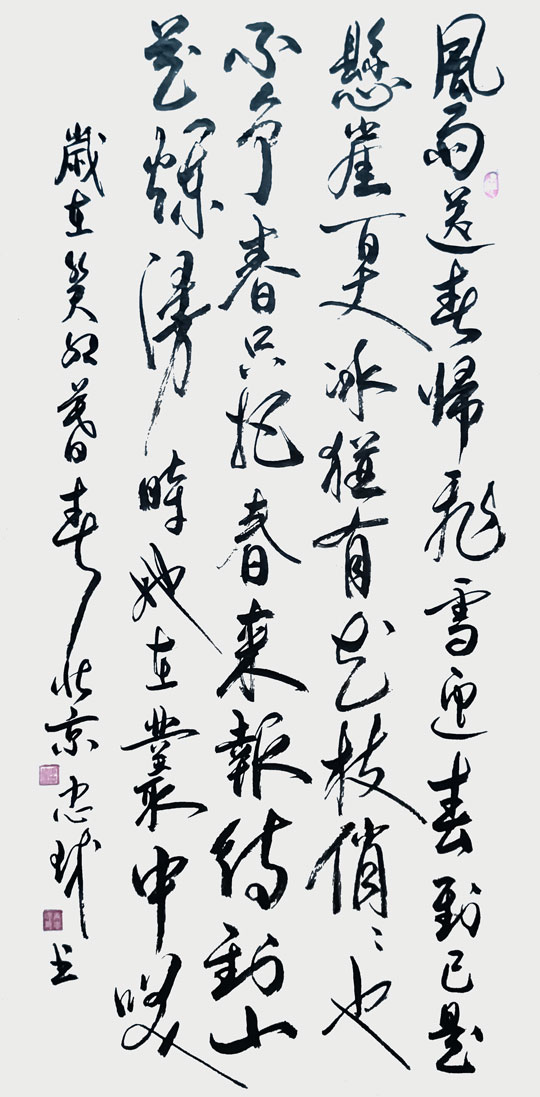 風雨送春歸飛雪迎春到已是
懸崖百丈冰猶有花枝俏〻也
不争春只把春来報待到山
花爛漫時她在叢中笑
歲在癸卯暮春北京忠书